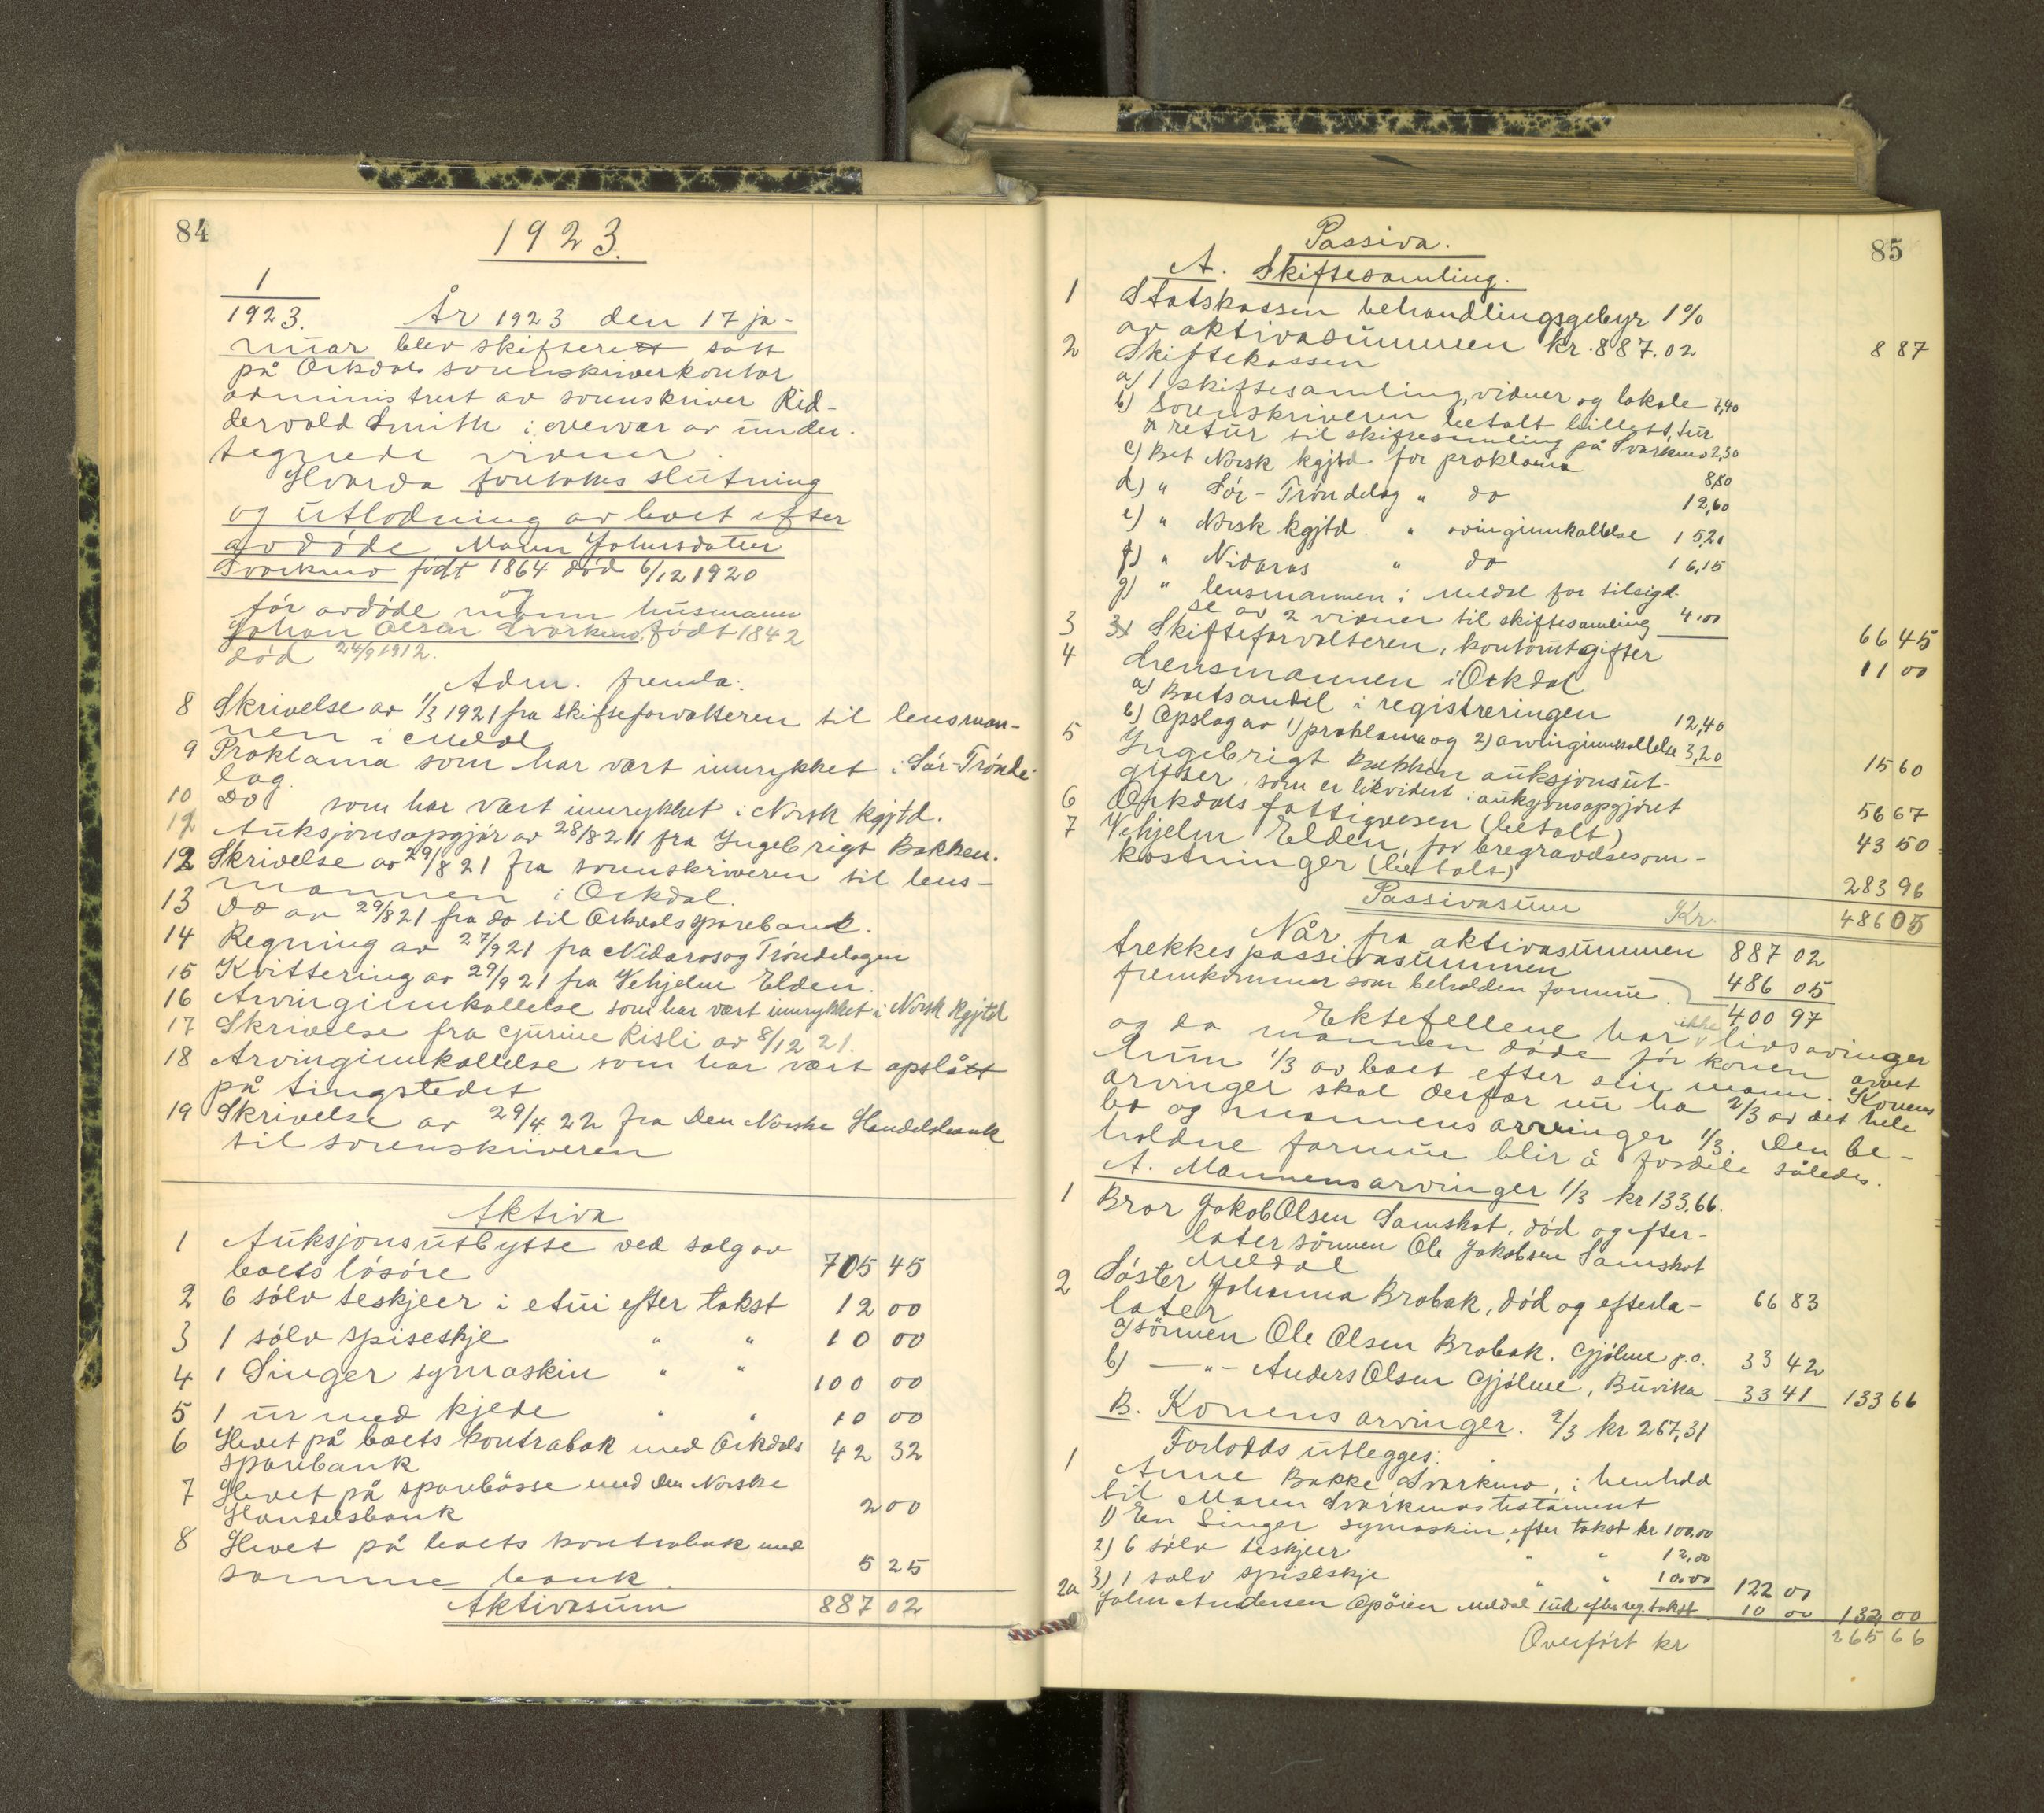 84
1923.
1
1923. År 1923 den 17 ja-
nuar blev skifterett satt
på Orkdals sorenskriverkontor
administrert av sorenskriver Rid-
dervold Smith i overvær av under-
tegnede vidner.
Hvorda foretokes slutning
og utlodning av boet efter
avdøde Maren Johnsdatter
Svorkmo født 1864 død 6/12 1920
og
før avdøde mann husmann
Johan Olsen Svorkmo, født 1842
død 24/9 1912.
Adm. fremla:
8 Skrivelse av 1/3 1921 fra skifteforvalteren til lensman-
nen i Meldal
9 Proklama som har vært innrykket i Sør-Trønde-
lag.
10 Do som har vært innrykket i Norsk kgjtd.
12 Auksjonsopgjør av 28/8 21 fra Ingebrigt Bakken.
12 Skrivelse av 29/8 21 fra sorenskriveren til lens-
mannen i Orkdal.
13 Do av 29/8 21 fra do til Orkdals sparebank.
14 Regning av 27/9 21 fra Nidaros og Trøndelagen
15 Kvittering av 29/9 21 fra Vehjelm Elden.
16 Arvinginnkallelse som har vært innrykket i Norsk kgjtd
17 Skrivelse fra Gurine Risli av 8/12 21.
18 Arvinginnkallelse som har vært opslått
på tingstedet
19 Skrivelse av 29/4 22 fra Den Norske Handelsbank
til sorenskriveren
Aktiva
1 Auksjonsutbytte ved salg av
boets løsøre 705 45
2 6 sølv teskjeer i etui efter takst 12 00
3 1 sølv spiseskje " " 10 00
4 1 Singer symaskin " " 100 00
5 1 ur med kjede " " 10 00
6 Hevet på boets kontrabok med Orkdals
sparebank 42 32
7 Hevet på sparebøsse med Den Norske
Handelsbank 2 00
8 Hevet på boets kontrabok med
samme bank. 5 25
Aktivasum 887 02
85
Passiva.
A. Skiftesamling.
1 Statskassen behandlingsgebyr 1%
av aktivasummen kr. 887.02 8 87
2 Skiftekassen
a) 1 skiftesamling, vidner og lokale 7,40
b) Sorenskriveren betalt billett, tur
n retur til skiftesamling på Svorkmo 2,30
c) Bet Norsk kgjtd for proklama 8,80
d) " Sør-Trøndelag " do 12,60
e) " Norsk kgjtd. " arvinginnkallelse 15,20
f) " Nidaros " do 16,15
g) " lensmannen i Meldal for tilsigel-
se av 2 vidner til skiftesamling 4,00 66 45
3 Skifteforvalteren, kontorutgifter 11 00
4 Lensmannen i Orkdal
a) Boets andel i registreringen 12,40
b) Opslag av 1) proklama og 2) arvinginnkallelse 3,20 15 60
5 Ingebrigt Bakken auksjonsut-
gifter, som er likvidert i auksjonsopgjøret 56 67
6 Orkdals fattigvesen (betalt) 43 50
7 Vehjelm Elden, for begravelsesom-
kostninger (betalt) 283 96
Passivasum Kr. 486 05
Når fra aktivasummen 887 02
trekkes passivasummen 486 05
fremkommer som beholden formue. 400 97
Ektefellene har ikke livsarvinger
og da mannen døde før konen arvet
hun 1/3 av boet efter sin mann. Konens
arvinger skal derfor nu ha 2/3 av det hele
bo og mannens arvinger 1/3. Den be-
holdne formue blir å fordele således.
A. Mannens arvinger 1/3 kr 133.66.
1 Bror Jakob Olsen Samskot, død og efter-
later sønnen Ole Jakobsen Samskot
Meldal 66 83
2 Søster Johanna Brobak, død og efterla-
later
a) sønnen Ole Olsen Brobak. Gjølme p.o. 33 42
b) —"— Anders Olsen Gjølme, Buvika 33 41 133 66
B. Konens arvinger. 2/3 kr 267,31
Forlodds utlegges:
1 Anne Bakke Svorkmo, i henhold
til Maren Svorkmos testament
1) En Singer symaskin efter takst kr 100,00
2) 6 sølv teskjeer " " 12,00
3) 1 sølv spiseskje " " 10,00 122 00
2a John Andersen Opøien Meldal 1 ur efter reg. takst 10 00 132 00
Overført kr 265 66